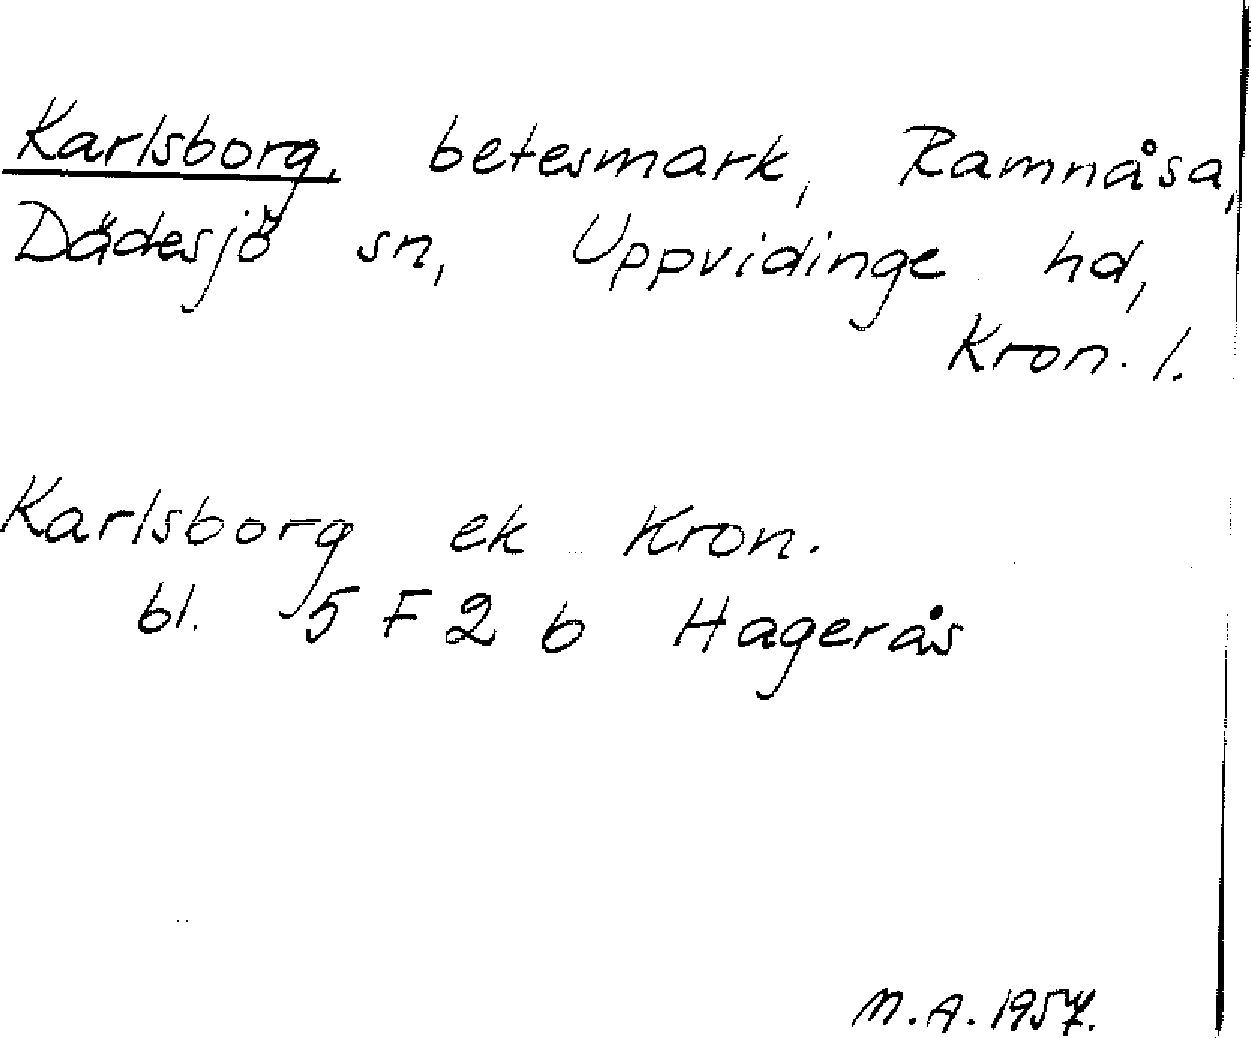 Karlsborg, betesmark, Ramnåsa,
Dädesjö sn, Uppvidinge hd,
Kron. l.
Karlsborg ek Kron.
bl. 5 F 2 b Hagerås
M.A. 1957.